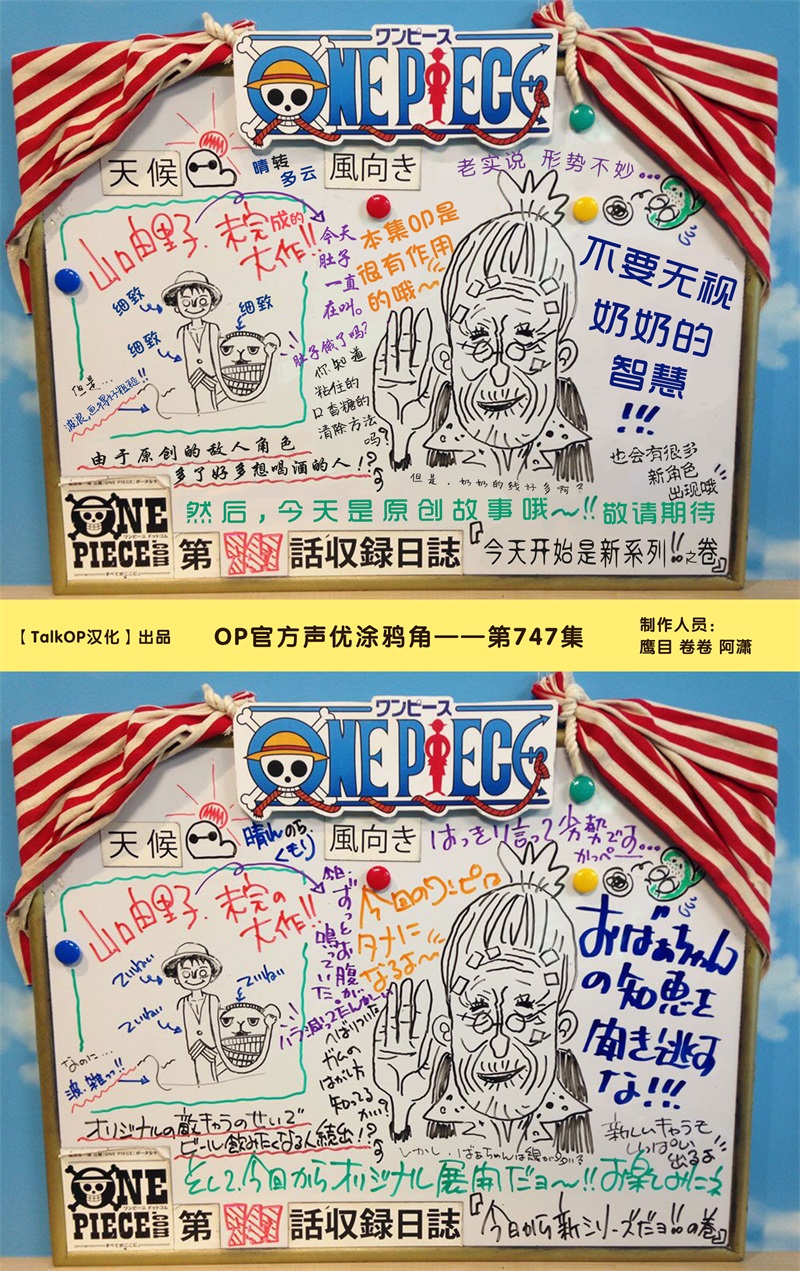 ワンピース
ONE PIECE
天候
晴转
多云
風向き
老实说 形势不妙...
山口由里子.
未完成的
大作!!
今天
肚子
一直
在叫。
本集OP是
很有作用
的哦~
不要无视
奶奶的
智慧
!!!
细致
细致
细致
肚子饿了吗?
你知道
粘住的
口香糖的
清除方法
吗?
但是...
波浪,画得好粗糙!!
由于原创的敌人角色
多了好多想喝酒的人!?
但是,奶奶的线好多啊?
也会有很多
新角色
出现哦
然后,今天是原创故事哦~!!敬请期待
ONE
PIECE.COM
ワンピース ドットコム
第
話収録日誌
『今天开始是新系列!!之卷』
【TalkOP汉化】出品
OP官方声优涂鸦角——第747集
制作人员:
鹰目 卷卷 阿潇
ワンピース
ONE PIECE
天候
晴れのち
くもり
風向き
はっきり言って劣勢です...
かっぺー
山口由里子.
未完の
大作!!
今日ずっとお腹が
鳴っていた。
ハラ減ってたんかい
今回のワンピは
タメに
なるよ~
おばあちゃん
の知恵を
聞き逃す
な!!!
ていねい
ていねい
ていねい
へばりついた
ガムの
はがし方
知ってる
かい?
なのに...
波、雑っ!!
オリジナルの敵キャラのせいで
ビール飲みたくなる人続出!?
しかし、ばあちゃんは線が多い?
新しいキャラも
いっぱい
出るよ
そして、今回からオリジナル展開だヨ~!!お楽しみにネ
ONE
PIECE.COM
ワンピース ドットコム
第
話収録日誌
『今日から新シリーズだヨ!!の巻』